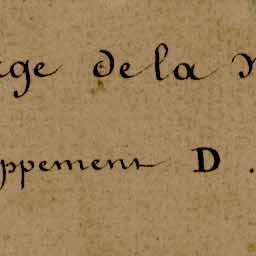 ge de la
ppement D.